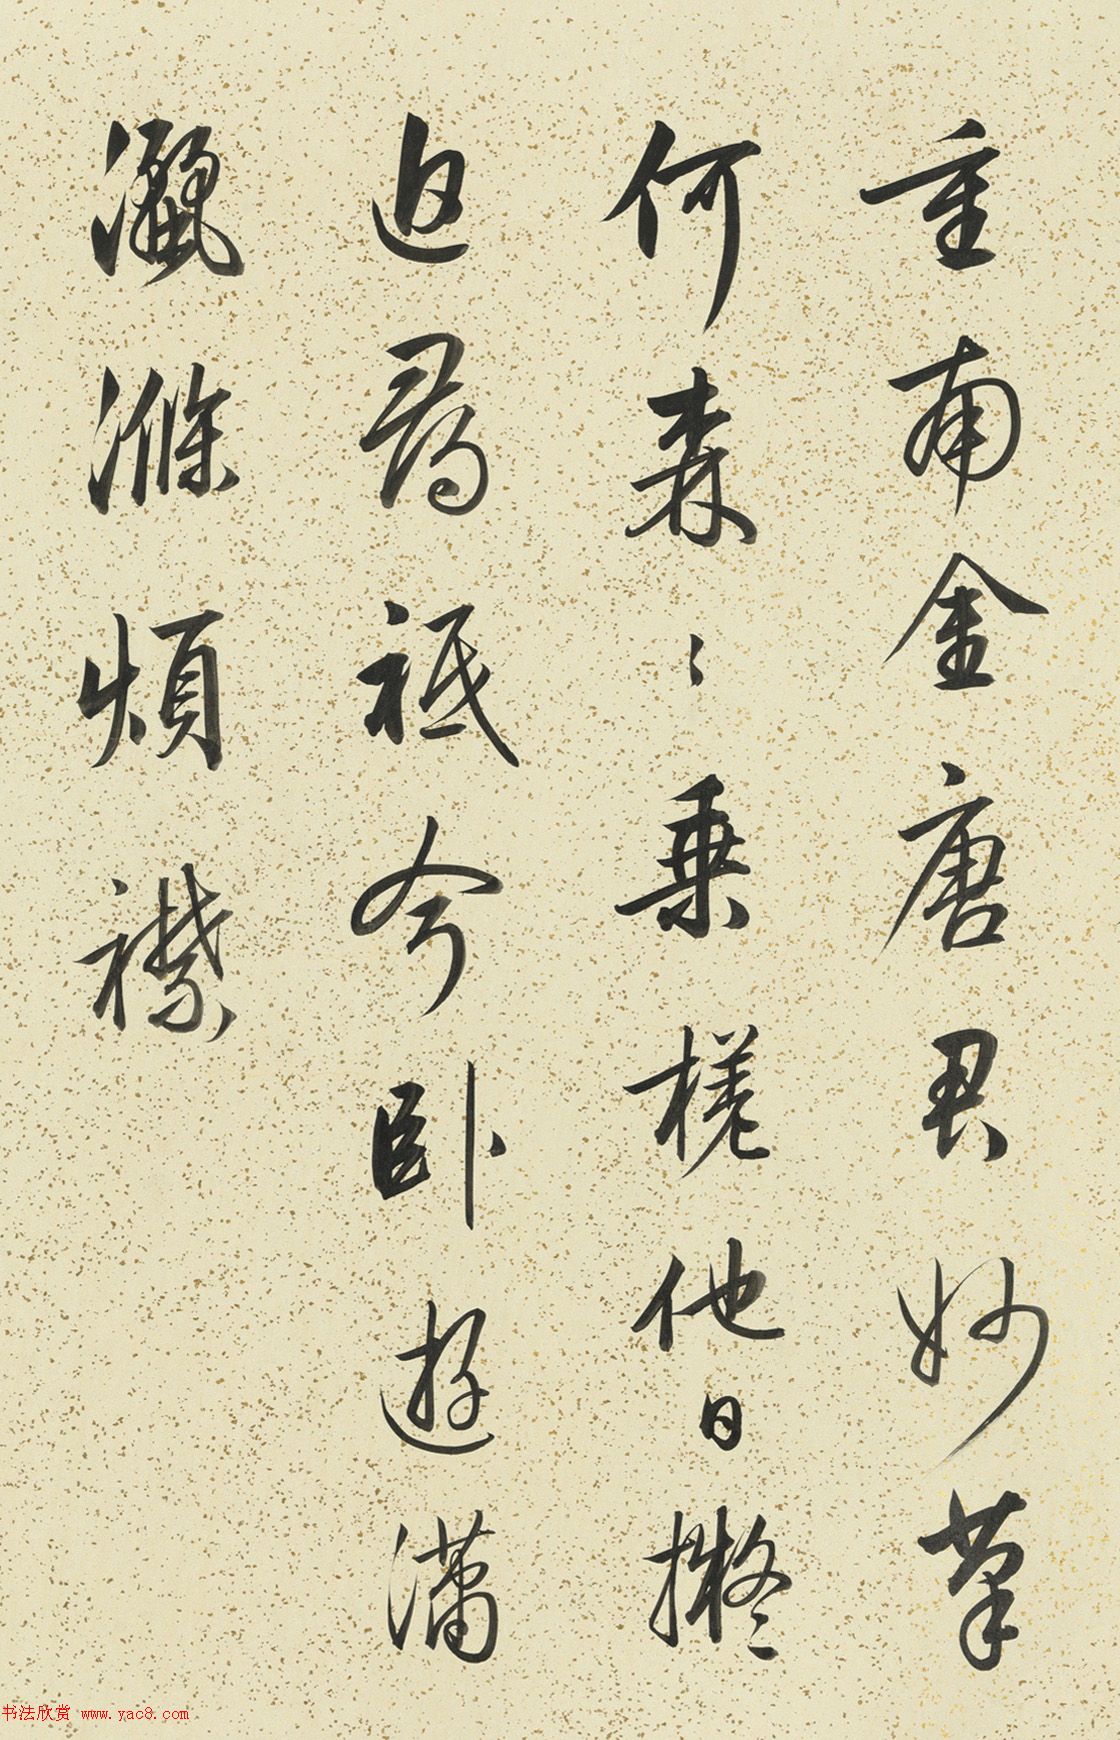 重南金唐君妙筆
何森〻乗槎他日擬
追尋祇今卧遊瀟
灑滌煩襟
书法欣赏 www.yac8.com